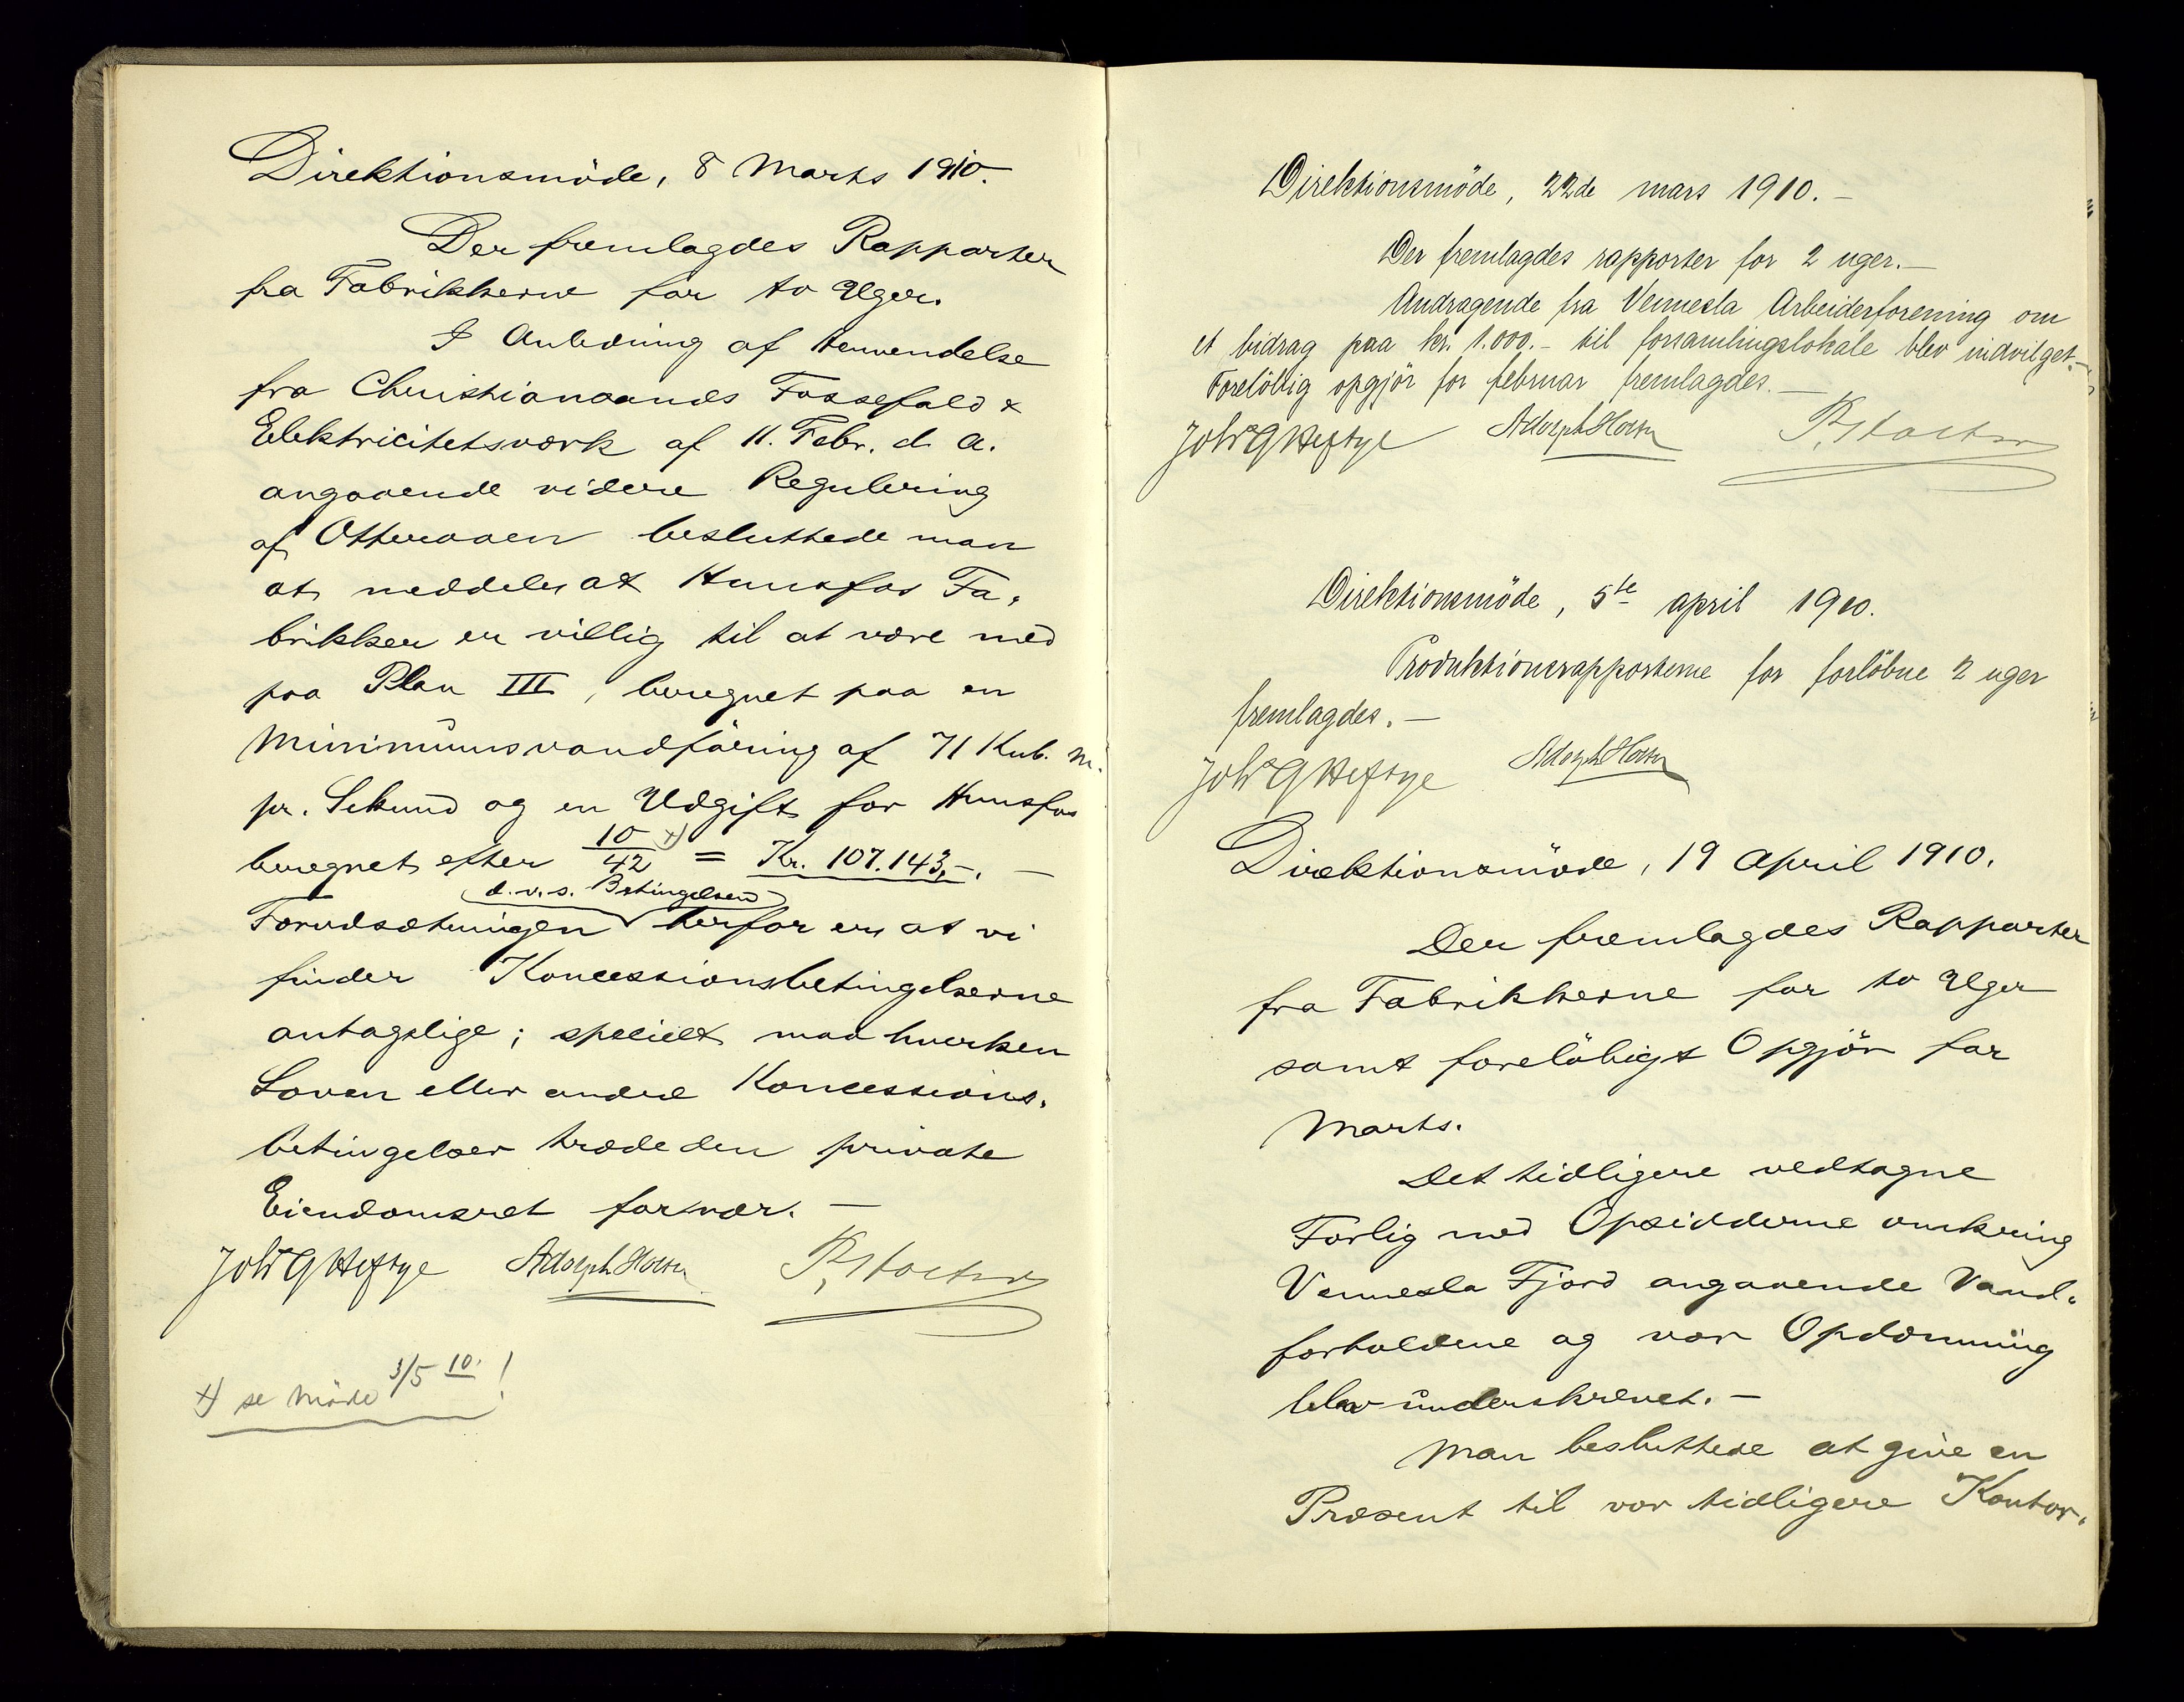 Direktionsmöde, 8 Marts 1910.
Der fremlagdes Rapporter
fra Fabrikkerne for to Uger.
I Anledning af Henvendelse
fra Christianssands Fossefald &
Elektricitetsværk af 11. Febr. d. A.
angaaende videre Regulering
af Otteraaen besluttede man
at meddele, at Hunsfos Fa-
brikker er villig til at være med
paa Plan III, beregnet paa en
Minimumsvandföring af 71 Kub. m.
pr. Sekund og en Udgift for Hunsfos
beregnet efter 10/42 x) = Kr. 107.143,-. —
d.v.s. Betingelsen
Forudsætningen herfor er, at vi
finder Koncessionsbetingelserne
antagelige; specielt maa hverken
Loven eller andre Koncessions-
betingelser træde den private
Eiendomsret for nær. —
Joh G Heftye Adolph Holm
x) se Möde 3/5 10. !
Direktionsmöde, 22de mars 1910. —
Der fremlagdes rapporter for 2 uger. —
Andragende fra Vennesla Arbeiderforening om
et bidrag paa kr. 1.000.- til forsamlingslokale blev indvilget. —
Forelöbig opgjör for februar fremlagdes. —
Joh G Heftye Adolph Holm
Direktionsmöde, 5te april 1910.
Produktionsrapporterne for forlöbne 2 uger
fremlagdes. —
Joh G Heftye Adolph Holm
Direktionsmöde, 19 April 1910.
Der fremlagdes Rapporter
fra Fabrikkerne for to Uger
samt forelöbigt Opgjör for
Marts.
Det tidligere vedtagne
Forlig med Opsidderne omkring
Vennesla Fjord angaaende Vand-
forholdene og vor Opdæmning
blev underskrevet. —
Man besluttede at give en
Præsent til vor tidligere Kontor-